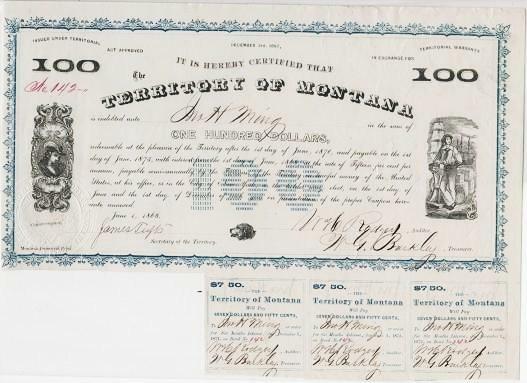 ISSUED UNDER TERRITORIAL ACT APPROVED DECEMBER 3rd, 1867, IN EXCHANGE FOR TERRITORIAL WARRANTS
100 IT IS HEREBY CERTIFIED THAT 100
No 142
The
TERRITORY OF MONTANA
is indebted unto Jno H Ming in the sum of
ONE HUNDRED DOLLARS,
redeemable at the pleasure of the Territory after the 1st day of June, 1870, and payable on the 1st
day of June, 1875, with interest from the 1st day of June, at the rate of Fifteen per cent per
annum, payable semi-annually in lawful money of the United
States, at his office, in the City of on the 1st day of
June and the 1st day of of the proper Coupon here-
unto annexed.
June 1, 1868.
James Tufts
Secretary of the Territory.
Wm H Rodgers Auditor
W. G. Barkley Treasurer.
$7 50. $7 50. $7 50.
THE THE THE
Territory of Montana Territory of Montana Territory of Montana
Will Pay Will Pay Will Pay
SEVEN DOLLARS AND FIFTY CENTS, SEVEN DOLLARS AND FIFTY CENTS, SEVEN DOLLARS AND FIFTY CENTS,
To Jno H Ming or order To Jno H Ming or order To Jno H Ming or order
for Six Months Interest, for Six Months Interest, for Six Months Interest,
on Bond No. 142 on Bond No. 142 on Bond No. 142
Auditor. Auditor. Auditor.
W G Barkley Treasurer. W G Barkley Treasurer. W G Barkley Treasurer.